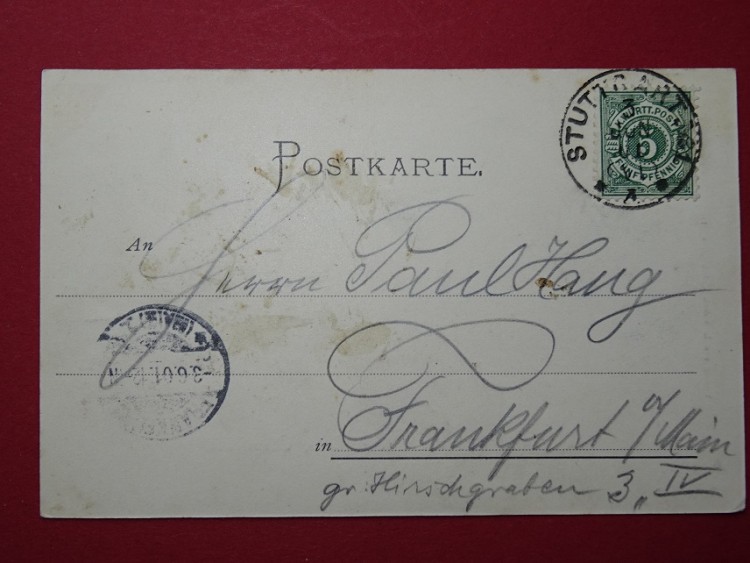 STUTTGART
3 JUN
K.WÜRTT.POST
5
FÜNF PFENNIG
POSTKARTE.
An
Herrn Paul Haug
3.6.01.12-
in Frankfurt a/Main
gr. Hirschgraben 3, IV